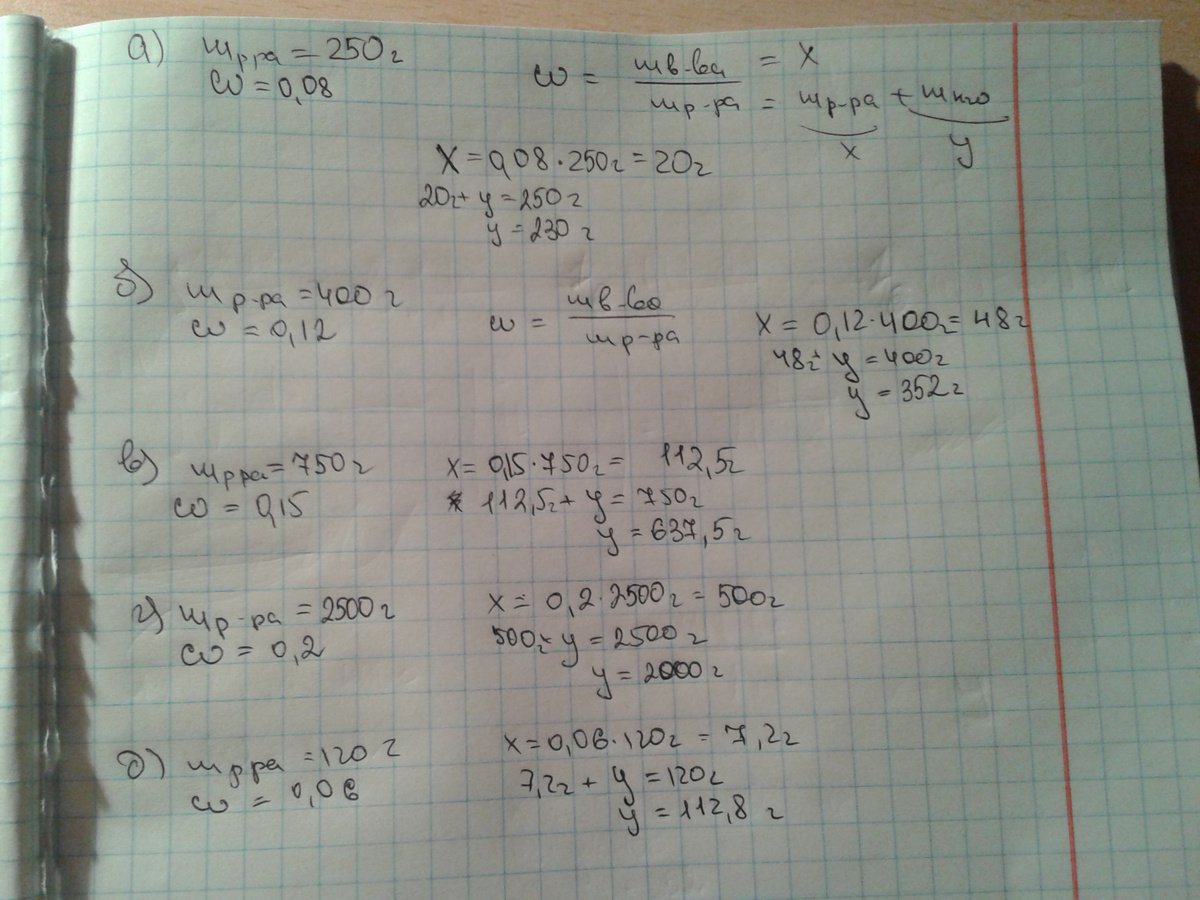 а) mр ра = 250 г
ω = 0,08
ω = mв-ва / mр-ра = x
= mр-ра + mH₂O
x y
X = 0,08 · 250 г = 20 г
20 г + y = 250 г
y = 230 г
б) mр-ра = 400 г
ω = 0,12
ω = mв-ва / mр-ра
X = 0,12 · 400 г = 48 г
48 г + y = 400 г
y = 352 г
в) mр ра = 750 г
ω = 0,15
x = 0,15 · 750 г = 112,5 г
112,5 г + y = 750 г
y = 637,5 г
г) mр-ра = 2500 г
ω = 0,2
x = 0,2 · 2500 г = 500 г
500 г + y = 2500 г
y = 2000 г
д) mр ра = 120 г
ω = 0,06
x = 0,06 · 120 г = 7,2 г
7,2 г + y = 120 г
y = 112,8 г